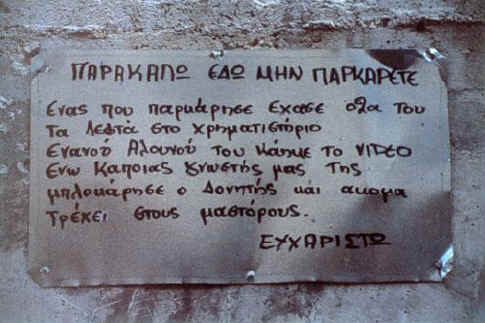 ΠΑΡΑΚΑΛΩ ΕΔΩ ΜΗΝ ΠΑΡΚΑΡΕΤΕ
Ενας που παρκάρησε εχασε ολα του
τα λεφτά στο χρηματιστήριο
Ενανού Αλουνού του κάηκε το VIDEO
Ενω Καποιας γνωστής μας της
μπλοκάρησε ο Δονητής και ακομα
τρέχει στους μαστόρους.
ΕΥΧΑΡΙΣΤΩ